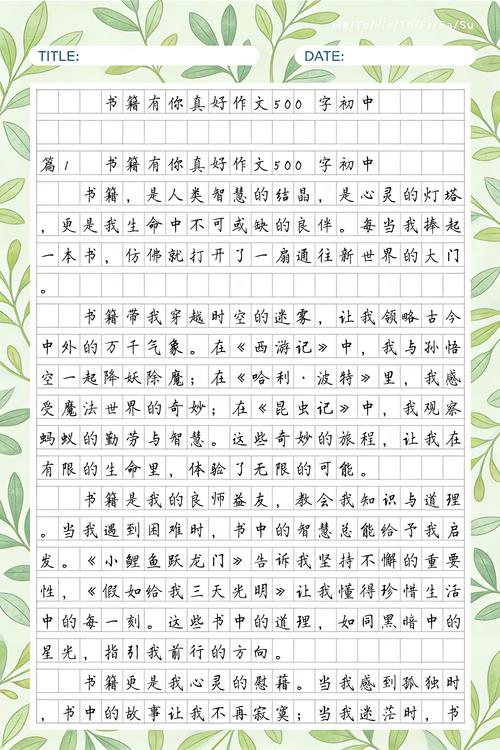 Me/Tu/We/Th/Fr/Sa/Su
TITLE:
DATE:
书籍有你真好作文500 字初中
篇1 书籍有你真好作文500 字初中
书籍，是人类智慧的结晶，是心灵的灯塔
，更是我生命中不可或缺的良伴。每当我捧起
一本书，仿佛就打开了一扇通往新世界的大门
。
书籍带我穿越时空的迷雾，让我领略古今
中外的万千气象。在《西游记》中，我与孙悟
空一起降妖除魔；在《哈利·波特》里，我感
受魔法世界的奇妙；在《昆虫记》中，我观察
蚂蚁的勤劳与智慧。这些奇妙的旅程，让我在
有限的生命里，体验了无限的可能。
书籍是我的良师益友，教会我知识与道理
。当我遇到困难时，书中的智慧总能给予我启
发。《小鲤鱼跃龙门》告诉我坚持不懈的重要
性，《假如给我三天光明》让我懂得珍惜生活
中的每一刻。这些书中的道理，如同黑暗中的
星光，指引我前行的方向。
书籍更是我心灵的慰藉。当我感到孤独时
，书中的故事让我不再寂寞；当我迷茫时，书